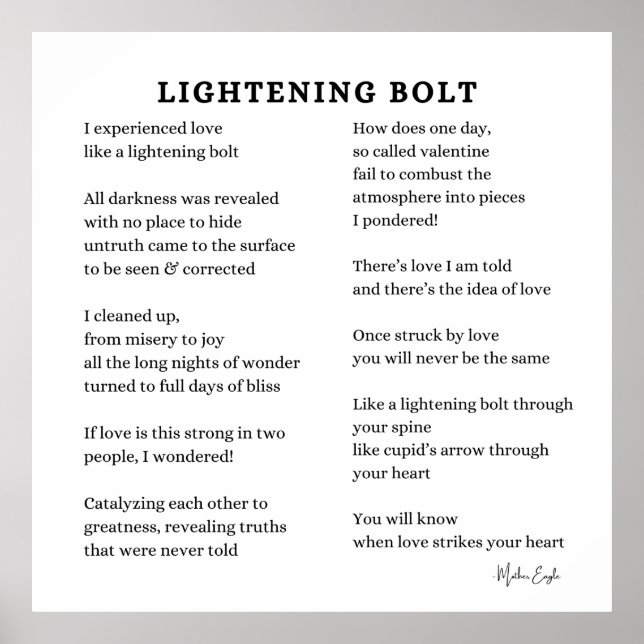 LIGHTENING BOLT
I experienced love
like a lightening bolt
All darkness was revealed
with no place to hide
untruth came to the surface
to be seen & corrected
I cleaned up,
from misery to joy
all the long nights of wonder
turned to full days of bliss
If love is this strong in two
people, I wondered!
Catalyzing each other to
greatness, revealing truths
that were never told
How does one day,
so called valentine
fail to combust the
atmosphere into pieces
I pondered!
There's love I am told
and there's the idea of love
Once struck by love
you will never be the same
Like a lightening bolt through
your spine
like cupid's arrow through
your heart
You will know
when love strikes your heart
-Mother Eagle